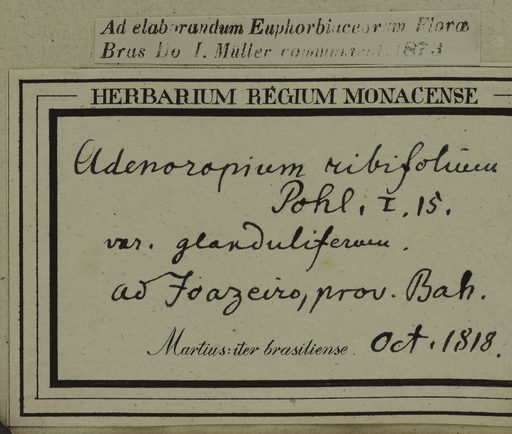 Ad elaborandum Euphorbiacearum Floræ
Bras Do I. Müller communicat. 1873
HERBARIUM REGIUM MONACENSE
Adenoropium ribifolium
Pohl. I. 15.
var. glanduliferum.
ad Joazeiro, prov. Bah.
Martius: iter brasiliense. Oct. 1818.